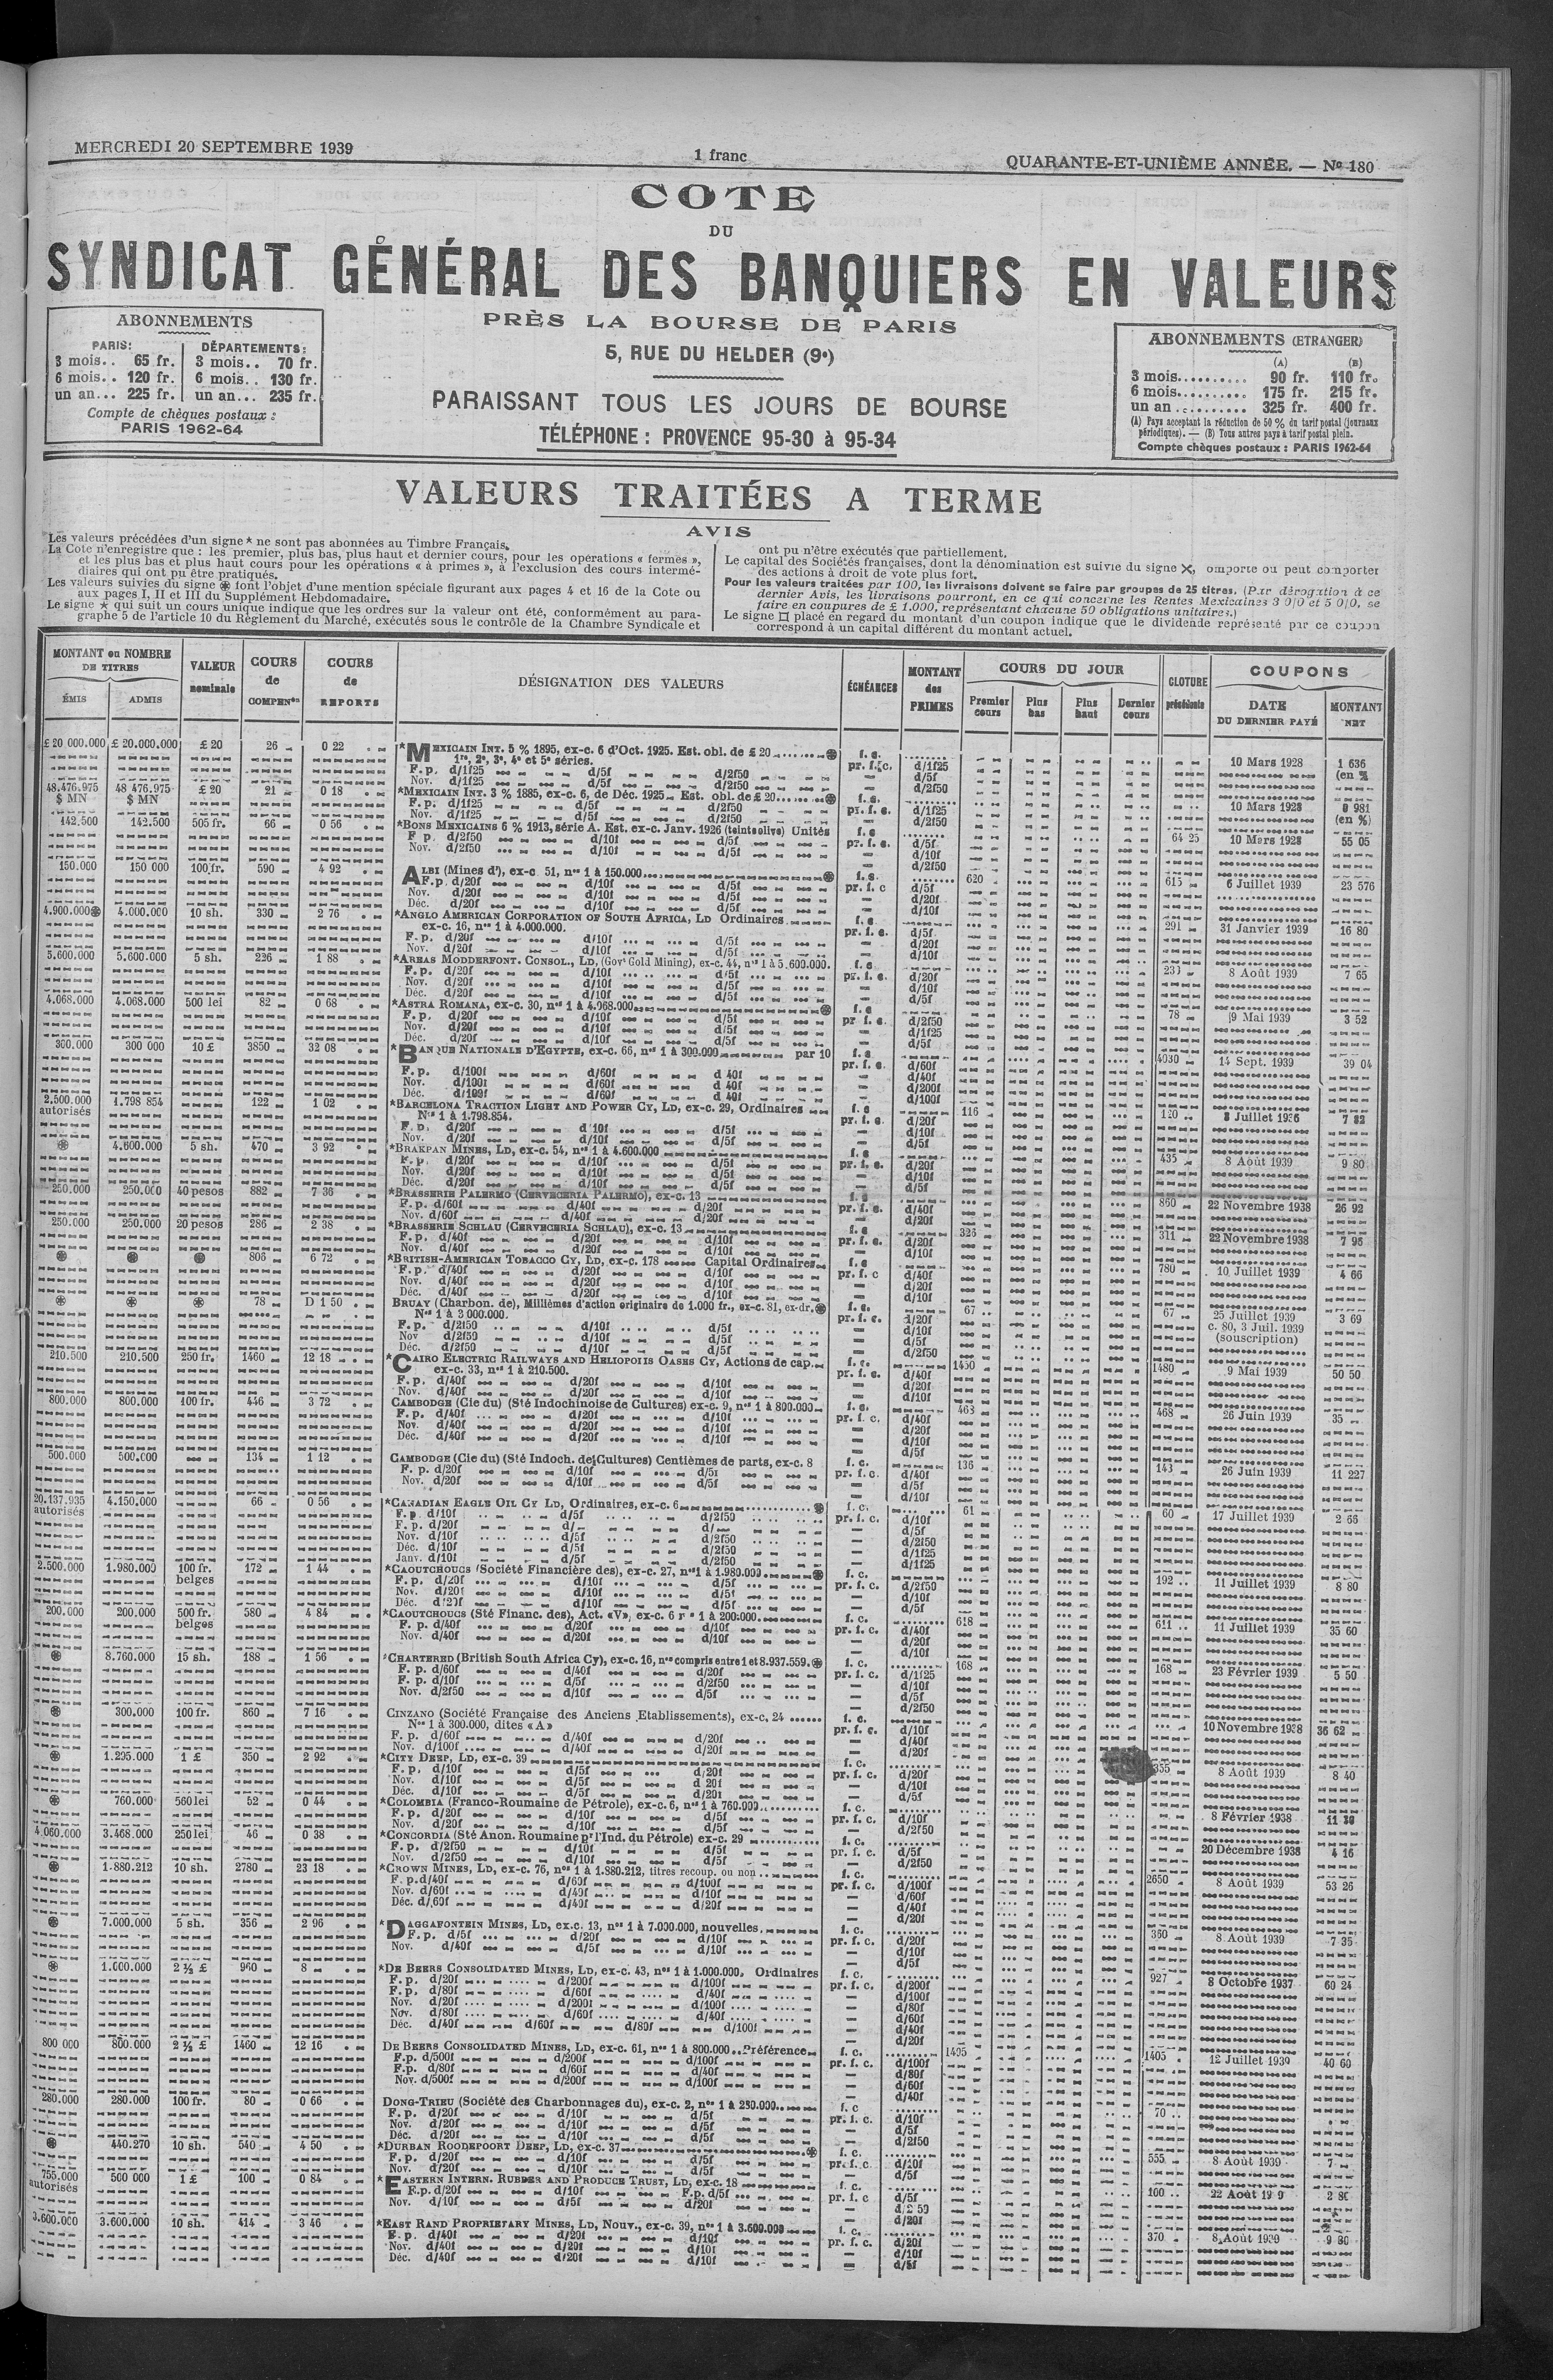 MERCREDI 20 SEPTEMBRE 1939
1 franc
QUARANTE-ET-UNIÈME ANNÉE. — No 180
COTE
DU
SYNDICAT GÉNÉRAL DES BANQUIERS EN VALEURS
PRÈS LA BOURSE DE PARIS
5, RUE DU HELDER (9e)
PARAISSANT TOUS LES JOURS DE BOURSE
TÉLÉPHONE : PROVENCE 95-30 à 95-34
ABONNEMENTS
PARIS: DÉPARTEMENTS:
3 mois.. 65 fr. 3 mois.. 70 fr.
6 mois.. 120 fr. 6 mois.. 130 fr.
un an... 225 fr. un an... 235 fr.
Compte de chèques postaux :
PARIS 1962-64
ABONNEMENTS (ETRANGER)
(A) (B)
3 mois.......... 90 fr. 110 fr.
6 mois.......... 175 fr. 215 fr.
un an........... 325 fr. 400 fr.
(A) Pays acceptant la réduction de 50 % du tarif postal (journaux
périodiques). — (B) Tous autres pays à tarif postal plein.
Compte chèques postaux : PARIS 1962-64
VALEURS TRAITÉES A TERME
AVIS
Les valeurs précédées d'un signe * ne sont pas abonnées au Timbre Français.
La Cote n'enregistre que : les premier, plus bas, plus haut et dernier cours, pour les opérations « fermes »,
et les plus bas et plus haut cours pour les opérations « à primes », à l'exclusion des cours intermé-
diaires qui ont pu être pratiqués.
Les valeurs suivies du signe ⊛ font l'objet d'une mention spéciale figurant aux pages 4 et 16 de la Cote ou
aux pages I, II et III du Supplément Hebdomadaire.
Le signe ★ qui suit un cours unique indique que les ordres sur la valeur ont été, conformément au para-
graphe 5 de l'article 10 du Règlement du Marché, exécutés sous le contrôle de la Chambre Syndicale et
ont pu n'être exécutés que partiellement.
Le capital des Sociétés françaises, dont la dénomination est suivie du signe ✕, omporte ou peut comporter
des actions à droit de vote plus fort.
Pour les valeurs traitées par 100, les livraisons doivent se faire par groupes de 25 titres. (Par dérogation à ce
dernier Avis, les livraisons pourront, en ce qui concerne les Rentes Mexicaines 3 0/0 et 5 0/0, se
faire en coupures de £ 1.000, représentant chacune 50 obligations unitaires.)
Le signe □ placé en regard du montant d'un coupon indique que le dividende représenté par ce coupon
correspond à un capital différent du montant actuel.
MONTANT ou NOMBRE DE TITRES
ÉMIS ADMIS
VALEUR nominale
COURS de COMPENson
COURS de REPORTS
DÉSIGNATION DES VALEURS
ÉCHÉANCES
MONTANT des PRIMES
COURS DU JOUR
Premier cours Plus bas Plus haut Dernier cours
CLOTURE précédente
COUPONS
DATE DU DERNIER PAYÉ
MONTANT NET
£ 20 000.000 £ 20.000.000 £ 20 26 0 22 *MEXICAIN INT. 5 % 1895, ex-c. 6 d'Oct. 1925. Est. obl. de £ 20 ⊛ f. c. 10 Mars 1928 1 636
1re, 2e, 3e, 4e et 5e séries. pr. f. c. d/1f25 (en %)
F. p. d/1f25 d/5f d/2f50 — d/5f
Nov. d/1f25 d/5f d/2f50 — d/2f50
48.476.975 48 476.975 £ 20 21 0 18 *MEXICAIN INT. 3 % 1885, ex-c. 6, de Déc. 1925. Est. obl. de £ 20 ⊛ f. c. 10 Mars 1928 0 981
$ MN $ MN F. p. d/1f25 d/5f d/2f50 pr. f. c. d/1f25 (en %)
Nov. d/1f25 d/5f d/2f50 — d/2f50
142.500 142.500 505 fr. 66 0 56 *BONS MEXICAINS 6 % 1913, série A. Est. ex-c. Janv. 1926 (teinte olive) Unités f. c. 64 25 10 Mars 1928 55 05
F p. d/2f50 d/10f d/5f pr. f. c. d/5f
Nov. d/2f50 d/10f d/5f — d/10f
— d/2f50
150.000 150 000 100 fr. 590 4 92 ALBI (Mines d'), ex-c 51, nos 1 à 150.000 ⊛ f. c. 620 615 6 Juillet 1939 23 576
F.p. d/20f d/10f d/5f pr. f. c d/5f
Nov. d/20f d/10f d/5f — d/20f
Déc. d/20f d/10f d/5f — d/10f
4.900.000⊛ 4.000.000 10 sh. 330 2 76 *ANGLO AMERICAN CORPORATION OF SOUTH AFRICA, LD Ordinaires f. c 291 31 Janvier 1939 16 80
ex-c. 16, nos 1 à 4.000.000. pr. f. c. d/5f
F. p. d/20f d/10f d/5f — d/20f
Nov. d/20f d/10f d/5f — d/10f
5.600.000 5,600.000 5 sh. 226 1 88 *AREAS MODDERFONT. CONSOL., LD, (Govt Gold Mining), ex-c. 44, nos 1 à 5.600.000. f. c 8 Août 1939 7 65
F. p. d/20f d/10f d/5f pr. f. c. d/20f
Nov. d/20f d/10f d/5f — d/10f
Déc. d/20f d/10f d/5f — d/5f
4,068.000 4.068.000 500 lei 82 0 68 *ASTRA ROMANA, ex-c. 30, nos 1 à 4.068.000 ⊛ f. c 78 9 Mai 1939 3 52
F. p. d/20f d/10f d/5f pr f. c. d/2f50
Nov. d/20f d/10f d/5f — d/1f25
Déc. d/20f d/10f d/5f — d/5f
300.000 300 000 10 £ 3850 32 08 *BANQUE NATIONALE D'EGYPTE, ex-c. 66, nos 1 à 300.000 par 10 f. c 4030 14 Sept. 1939 39 04
F. p. d/100f d/60f d 40f pr. f. c. d/60f
Nov. d/100f d/60f d 40f — d/40f
Déc. d/100f d/60f d 40f — d/200f
— d/100f
2.500.000 1.798 854 122 1 02 *BARCELONA TRACTION LIGHT AND POWER CY, LD, ex-c. 29, Ordinaires f. c 116 120 8 Juillet 1936 7 82
autorisés Nos 1 à 1.798.854. pr. f. c. d/20f
F. p. d/20f d 10f d/5f — d/10f
Nov. d/20f d/10f d/5f — d/5f
⊛ 4.600.000 5 sh. 470 3 92 *BRAKPAN MINES, LD, ex-c. 54, nos 1 à 4.600.000 f. c 435 8 Août 1939 9 80
F. p. d/20f d/10f d/5f pr. f. c. d/20f
Nov. d/20f d/10f d/5f — d/10f
Déc. d/20f d/10f d/5f — d/5f
250.000 250.000 40 pesos 882 7 36 *BRASSERIE PALERMO (CERVECERIA PALERMO), ex-c. 13 f. c 860 22 Novembre 1938 26 92
F. p. d/60f d/40f d/20f pr. f. c. d/40f
Nov. d/60f d/40f d/20f — d/20f
250.000 250.000 20 pesos 286 2 38 *BRASSERIE SCHLAU (CERVECERIA SCHLAU), ex-c. 13 f. c 326 311 22 Novembre 1938 7 96
F. p. d/40f d/20f d/10f pr. f. c. d/20f
Nov. d/40f d/20f d/10f — d/10f
⊛ ⊛ ⊛ 806 6 72 *BRITISH-AMERICAN TOBACCO CY, LD, ex-c. 178 Capital Ordinaires f. c 780 10 Juillet 1939 4 66
F. p. d/40f d/20f d/10f pr. f. c d/40f
Nov. d/40f d/20f d/10f — d/20f
Déc. d/40f d/20f d/10f — d/10f
⊛ ⊛ ⊛ 78 D 1 50 BRUAY (Charbon. de), Millièmes d'action originaire de 1.000 fr., ex-c. 81, ex-dr. ⊛ f. c. 67 67 25 Juillet 1939 3 69
Nos 1 à 2.000.000. pr. f. c. d/20f c. 80, 3 Juil. 1939
F. p. d/2f50 d/10f d/5f — d/10f (souscription)
Nov d/2f50 d/10f d/5f — d/5f
Déc. d/2f50 d/10f d/5f — d/2f50
210.500 210.500 250 fr. 1460 12 18 *CAIRO ELECTRIC RAILWAYS AND HELIOPOLIS OASES CY, Actions de cap. f. c. 1450 1480 9 Mai 1939 50 50
ex-c. 33, nos 1 à 210.500. pr. f. c. d/40f
F. p. d/40f d/20f d/10f — d/20f
Nov. d/40f d/20f d/10f — d/10f
800.000 800.000 100 fr. 446 3 72 CAMBODGE (Cie du) (Sté Indochinoise de Cultures) ex-c. 9, nos 1 à 800.000 f. c. 463 468 26 Juin 1939 35
F. p. d/40f d/20f d/10f pr. f. c. d/40f
Nov. d/40f d/20f d/10f — d/20f
Déc. d/40f d/20f d/10f — d/10f
— d/5f
500.000 500.000 134 1 12 CAMBODGE (Cie du) (Sté Indoch. de Cultures) Centièmes de parts, ex-c. 8 f. c. 136 143 26 Juin 1939 11 227
F. p. d/20f d/10f d/5f pr. f. c. d/40f
Nov. d/20f d/10f d/5f — d/5f
— d/10f
20.137.935 4.150.000 66 0 56 *CANADIAN EAGLE OIL CY LD, Ordinaires, ex-c. 6 ⊛ f. c. 61 60 17 Juillet 1939 2 66
autorisés F. p d/10f d/5f d/2f50 pr. f. c. d/10f
F. p. d/20f d/ d/ — d/5f
Nov. d/10f d/5f d/2f50 — d/2f50
Déc. d/10f d/5f d/2f50 — d/1f25
Janv. d/10f d/5f d/2f50 — d/1f25
2.500.000 1.980.000 100 fr. 172 1 44 *CAOUTCHOUCS (Société Financière des), ex-c. 27, nos 1 à 1.980.000 ⊛ f. c. 192 11 Juillet 1939 8 80
belges F. p. d/20f d/10f d/5f pr. f. c. d/2f50
Nov. d/20f d/10f d/5f — d/10f
Déc. d/20f d/10f d/5f — d/5f
200.000 200.000 500 fr. 580 4 84 *CAOUTCHOUCS (Sté Financ. des), Act. «V», ex-c. 6 nos 1 à 200.000 f. c. 618 611 11 Juillet 1939 35 60
belges F. p. d/40f d/20f d/10f pr. f. c. d/40f
Nov. d/40f d/20f d/10f — d/20f
— d/10f
⊛ 8.760.000 15 sh. 188 1 56 *CHARTERED (British South Africa Cy), ex-c. 16, nos compris entre 1 et 8.937.559. ⊛ f. c. 168 168 23 Février 1939 5 50
F. p. d/60f d/40f d/20f pr. f. c. d/1f25
F. p. d/10f d/5f d/2f50 — d/10f
Nov. d/2f50 d/10f d/5f — d/5f
— d/2f50
⊛ 300.000 100 fr. 860 7 16 CINZANO (Société Française des Anciens Etablissements), ex-c. 24 f. c. 10 Novembre 1938 36 62
Nos 1 à 300.000, dites «A» pr. f. c. d/10f
F. p. d/60f d/40f d/20f — d/40f
Nov. d/100f d/40f d/20f — d/20f
⊛ 1.295.000 1 £ 350 2 92 *CITY DEEP, LD, ex-c. 39 f. c. 355 8 Août 1939 8 40
F. p. d/10f d/5f d/20f pr. f. c. d/20f
Nov. d/10f d/5f d 20f — d/10f
Déc. d/10f d/5f d/20f — d/5f
⊛ 760.000 560 lei 52 0 44 *COLOMBIA (Franco-Roumaine de Pétrole), ex-c. 6, nos 1 à 760.000 f. c. 8 Février 1938
F. p. d/20f d/10f d/5f pr. f. c. d/10f
Nov. d/20f d/10f d/5f — d/2f50
4.060.000 3.468.000 250 lei 46 0 38 *CONCORDIA (Sté Anon. Roumaine pr l'Ind. du Pétrole) ex-c. 29 f. c. 20 Décembre 1938 4 16
F. p. d/2f50 d/10f d/5f pr. f. c. d/5f
Nov. d/2f50 d/10f d/5f — d/2f50
⊛ 1.880.212 10 sh. 2780 23 18 *CROWN MINES, LD, ex-c. 76, nos 1 à 1.880.212, titres recoup. ou non f. c. 2650 8 Août 1939 53 26
F. p. d/40f d/60f d/100f pr. f. c. d/100f
Nov. d/60f d/40f d/10f — d/60f
Déc. d/60f d/40f d/20f — d/40f
— d/20f
⊛ 7.000.000 5 sh. 356 2 96 *DAGGAFONTEIN MINES, LD, ex.c. 13, nos 1 à 7.000.000, nouvelles f. c. 360 8 Août 1939 7 35
F. p. d/5f d/20f d/10f pr. f. c. d/20f
Nov. d/40f d/5f d/10f — d/10f
— d/5f
⊛ 1.000.000 2 ½ £ 960 8 *DE BEERS CONSOLIDATED MINES, LD, ex-c. 43, nos 1 à 1.000.000, Ordinaires f. c. 927 8 Octobre 1937 60 24
F. p. d/20f d/200f d/100f pr. f. c. d/200f
F. p. d/80f d/60f d/40f — d/100f
Nov. d/20f d/200f d/100f — d/80f
Nov. d/80f d/60f d/40f — d/60f
Déc. d/40f d/60f d/80f d/100f — d/40f
— d/20f
800 000 800.000 2 ½ £ 1460 12 16 DE BEERS CONSOLIDATED MINES, LD, ex-c. 61, nos 1 à 800.000 Préférence f. c. 1405 12 Juillet 1939 40 60
F.p. d/500f d/200f d/100f pr. f. c. d/100f
F.p. d/80f d/60f d/40f — d/80f
Nov. d/500f d/200f d/100f — d/60f
— d/40f
280.000 280.000 100 fr. 80 0 66 DONG-TRIEU (Société des Charbonnages du), ex-c. 2, nos 1 à 250.000 f. c 70
F. p. d/20f d/10f d/5f pr. f. c. d/10f
Nov. d/20f d/10f d/5f — d/5f
Déc. d/20f d/10f d/5f — d/2f50
⊛ 440.270 10 sh. 540 4 50 *DURBAN ROODEPOORT DEEP, LD, ex-c. 37 ⊛ f. c. 555 8 Août 1939 7
F. p. d/20f d/10f d/5f pr. f. c d/10f
Nov. d/20f d/10f d/5f — d/5f
755.000 500 000 1 £ 100 0 84 *EASTERN INTERN. RUBBER AND PRODUCE TRUST, LD, ex-c. 18 f. c. 100 22 Août 19 9
autorisés F.p. d/20f d/10f F.p. d/5f pr. f. c d/5f
Nov. d/10f d/5f d/20f — d/2 50
— d/20f
3.600.000 3.600.000 10 sh. 414 3 46 *EAST RAND PROPRIETARY MINES, LD, Nouv., ex-c. 39, nos 1 à 3.600.000 f. c. 370 8 Août 1939 9 80
F. p. d/40f d/20f d/10f pr. f. c. d/20f
Nov. d/40f d/20f d/10f — d/10f
Déc. d/40f d/20f d/10f — d/5f